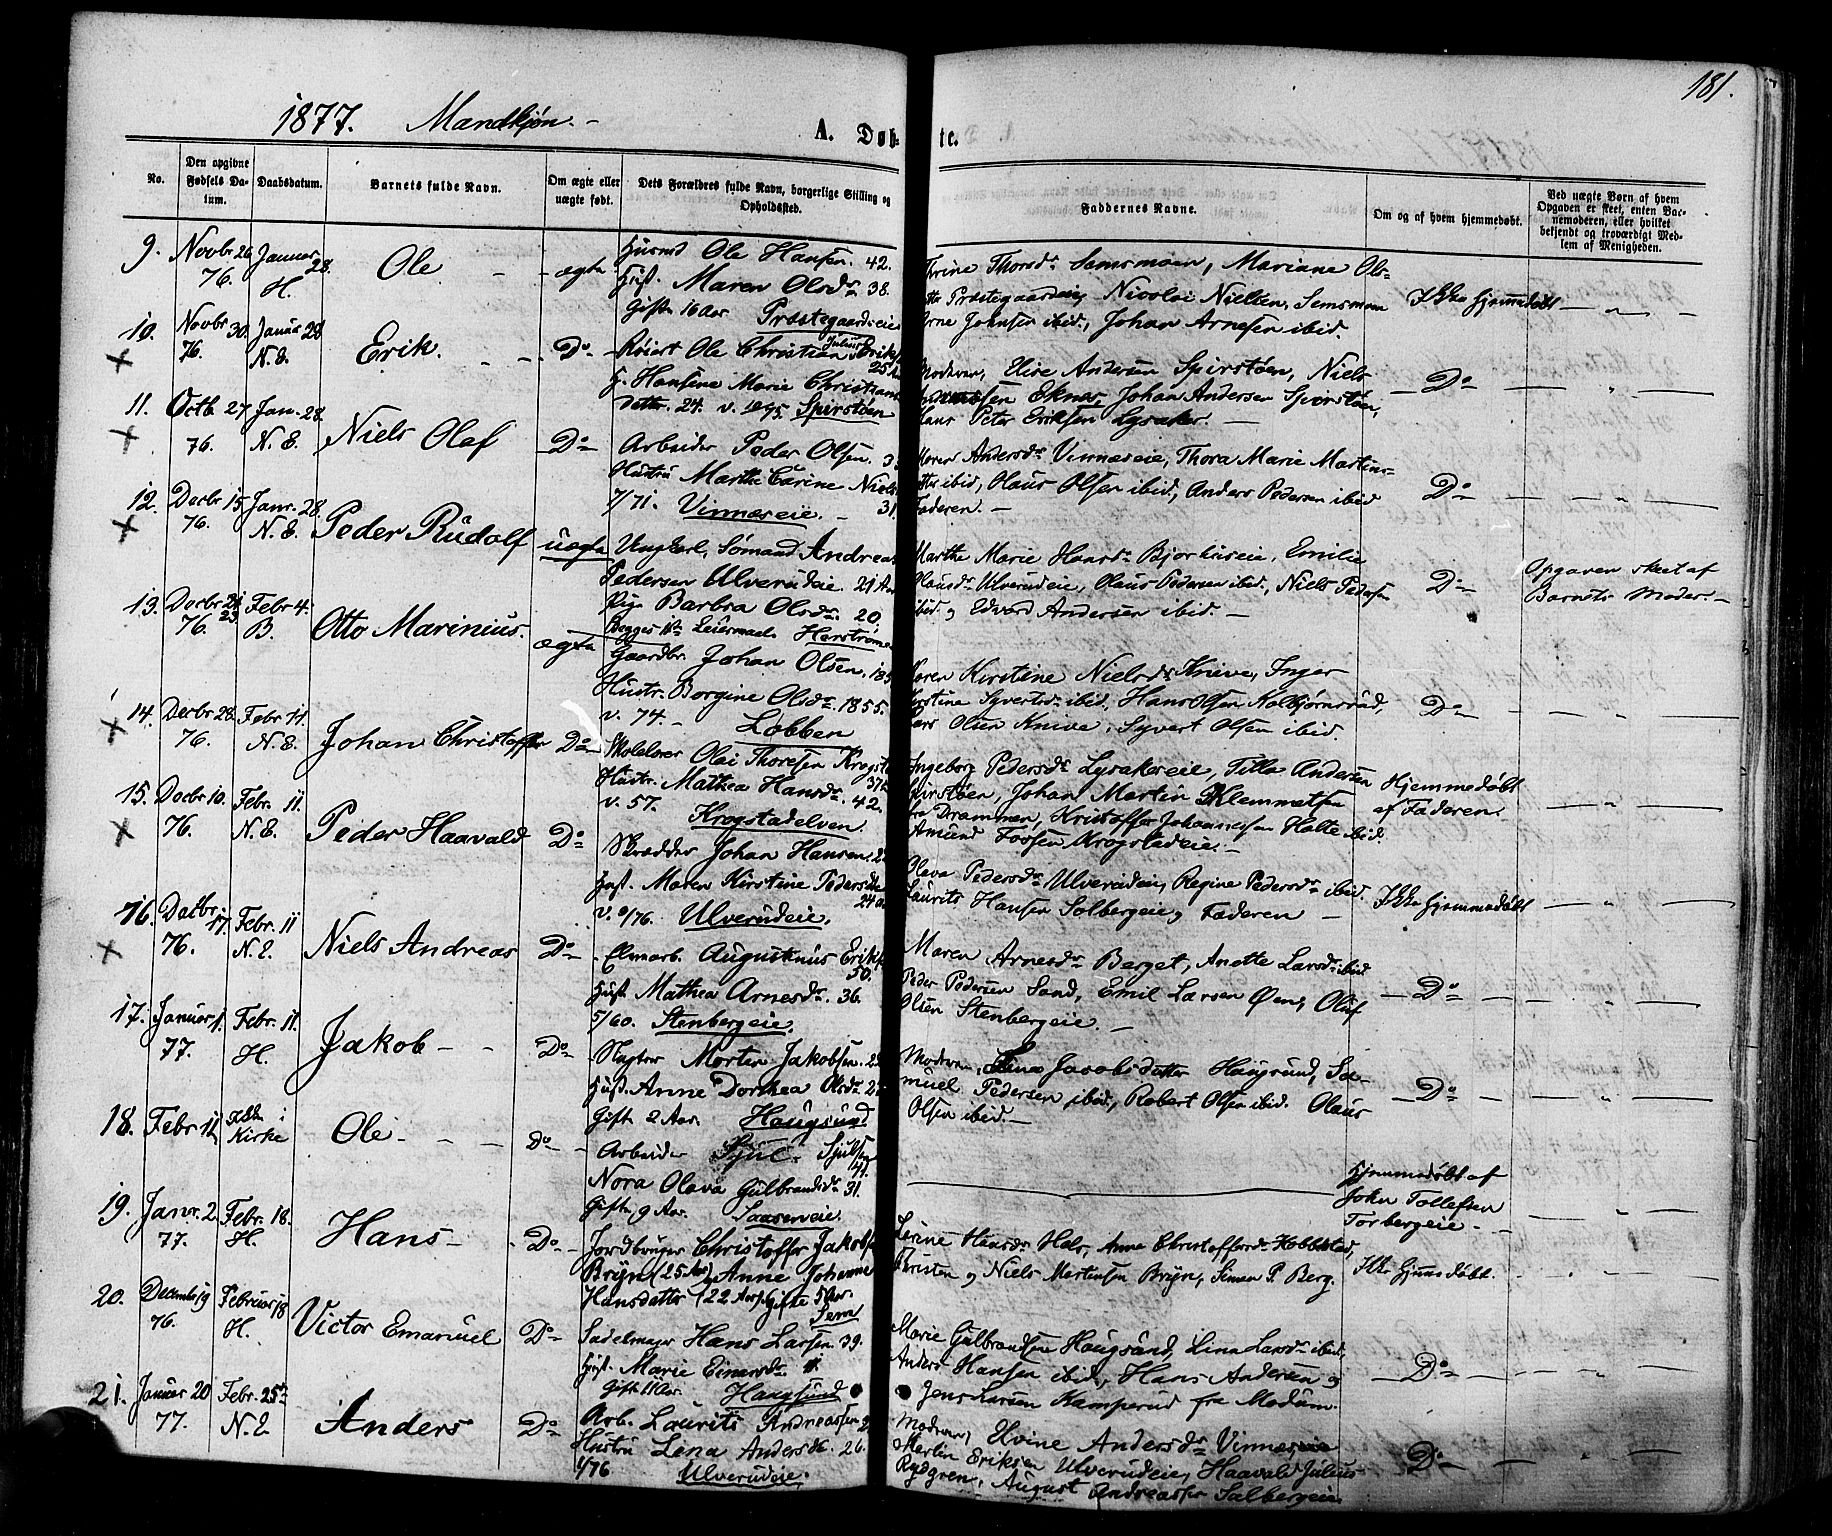 181.
1877. Mandkjøn. -
A. Døb-te.
No.
Den opgivne Fødsels Da-tum.
Daabsdatum.
Barnets fulde Navn.
Om ægte eller uægte født.
Dets Forældres fulde Navn, borgerlige Stilling og Opholdssted.
Faddernes Navne.
Om og af hvem hjemmedøbt.
Ved uægte Børn af hvem Opgaven er skeet, enten Bar-nemoderen, eller hvilket bekjendt og troværdigt Med-lem af Menigheden.
9. Novbr 26 76. Januar 28. H.
Ole
ægte
Husmd Ole Hansen. 42.
Hust. Maren Olsdr 38.
Gifte 16 Aar Præstegaardseie
Thrine Thorsdr Semsmoen, Mariane Ols-
Præstegaardseie, Nicolai Nielsen, Semsmoen
Arne Johnsen ibid., Johan Arnesen ibid.
Ikke hjemmedøbt
10. Novbr 30. 76. Januar 28 N.E.
Erik.
Do
Ole Christian Julius Eriks
25 Aar
H. Hansine Marie Christians
datter. 24. v. Spirstøen
Moderen, Elise Andersen Spirstøen, Niels
Eknes, Johan Andersen Spirstøen,
Hans Peter Eriksen Lysaker.
Do
11. Octb. 27 76. Jan. 28. N.E.
Niels Olaf
Do
Arbeider Peder Olsen.
Hustru Marthe Carine Niels
7/71. Vinnæseie. 31.
Maren Andersdr Vinnæseie, Thora Marie Martins-
ibid, Olaus Olsen ibid., Anders Pedersen ibid
Faderen.
Do
12. Decbr 15 76. Janr. 28. N.E.
Peder Rudolf
uægte
Ungkarl, Sømand Andreas
Pedersen Ulverudeie. 21 Aar
Pige Barbra Olsdr 20.
Begges 1ste Leiermaal. Horstrømen
Marthe Marie Hansdr Bjørkiseie, Emilie
Olausdr Ulverudeie, Olaus Pedersen ibid, Niels Pedersen
ibid og Edvard Andersen ibid
Do
Opgaven skeet af
Barnets Moder.
13. Decbr 76. Febr 4. B.
Otto Marinius.
ægte
Gaardbr. Johan Olsen, 185
Hustr. Borgine Olsdr. 1855.
v. 74. Lobben
Karen Kirstine Nielsdr Knive, Inger
Syvertsdr ibid, Hans Olsen Kolbjørnsrud,
Lars Olsen Knive, Syvert Olsen ibid
Do
14. Decbr 28. 76. Febr 11. N.E.
Johan Christoffer
Do
Skolelærer Olai Thoresen Krogsta
37
Hustr. Mathea Hansdr. 42.
v. 57. Krogstadelven.
Ingeborg Pedersdr Lysakereie, Tilla Andersen
Spirstøen, Johan Martin Klemmetsen
fra Drammen, Kristoffer Johannesen Holte ibid.
Amund Fossen Krogstadeie.
Hjemmedøbt
af Faderen.
15. Decbr 10. 76. Febr. 11. N.E.
Peder Haavald
Do
Skrædder Johan Hansen.
Hust. Maren Kirstine Pedersdtr
24
v. 9/76. Ulverudeie.
Olava Pedersdr Ulverudeie, Regine Pedersdr ibid.
Laurits Hansen Solbergeie, Faderen
Ikke hjemmedøbt
16. Decbr. 17. 76. Febr. 11 N.E.
Niels Andreas
Do
Augustinus Eriks
50.
Hust. Mathea Arnesdr. 36.
5/60. Stenbergeie.
Maren Arnesdr Berget, Anette Larsdr ibid
Peder Pedersen Sand, Emil Larsen Øen, Oluf
Olsen Stenbergeie.
Do
17. Januar 1. 77. Febr. 11. H.
Jakob
Do
Slagter Morten Jakobsen.
Hust. Anne Dorthea Olsdr
Gift 2 Aar. Haugsund
Moderen, Jacobsdatter Haugsund, Sa-
muel Pedersen ibid., Robert Olsen ibid. Olaus
Olsen ibid.
Do
18. Febr 11. Ikke i Kirke
Ole
Do
Arbeider Sjul Sjulsen
Nora Olava Gulbrandsdr 31.
Gifte 9 Aar. Saasenseie.
Hjemmedøbt af
John Tollefsen
Torbergeie
19. Janr. 2 77. Febr. 18. H.
Hans
Do
Jordbruger Christoffer Jakobs
Bryn (25 Aar) Anne Johanne
Hansdatter (22 Aar). Gifte 5 Aar.
Sem
Hansdr Hals, Anne Christoffersdr Hobbelstad,
Thorsten og Niels Mortensen Bryn, Simen P. Berg.
Ikke hjemmedøbt.
20. December 19 76. Februar 18 H.
Victor Emanuel
Do
Sadelmager Hans Larsen 39.
Hust. Marie Einarsdr
Gifte 11 Aar. Haugsund
Marie Gulbrandsen Haugsund, Lina Larsdr ibid,
Anders Hansen ibid., Hans Andersen og
Jens Larsen Kamperud fra Modum.
Do
21. Januar 20 77. Febr. 25de N.E.
Anders
Do
Arb. Laurits Andreassen
Hustru Lena Andersdr. 26.
1/76 Ulverudeie.
Moderen, Hvine Andersdr Vinnæseie
Martin Eriksen Ulverudeie, Haavald Julius
Rydgren, August Andreassen Solbergeie
Do